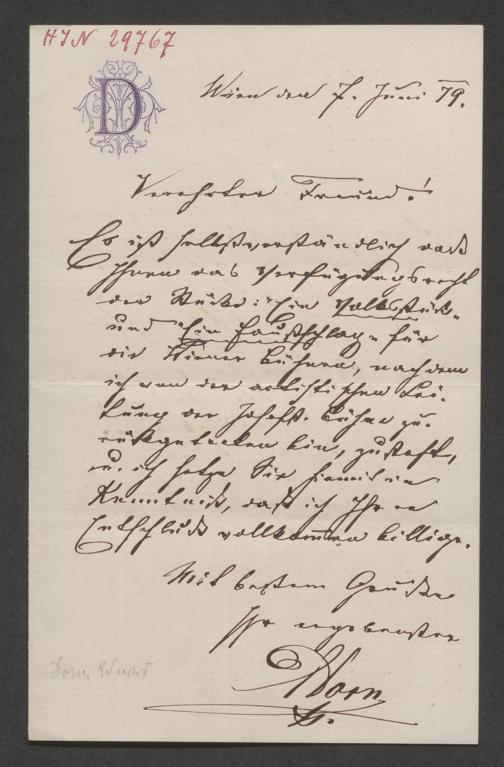 HIN 29767
D
Wien den 7. Juni 79.
Verehrter Freund!
Es ist selbstverständlich daß
Ihnen das Verfügungsrecht
der Stücke: "Ein Volksstück"
und "Ein Faustschlag" für
die Wiener Bühnen, nachdem
ich von der artistischen Lei-
tung der Josefst. Bühne zu-
rückgetreten bin, zusteht,
u. ich setze Sie hiemit in
Kenntniß, daß ich Ihren
Entschluß vollkommen billige.
Mit bestem Gruße
Ihr ergebenster
Dorn
Dorn, Eduard